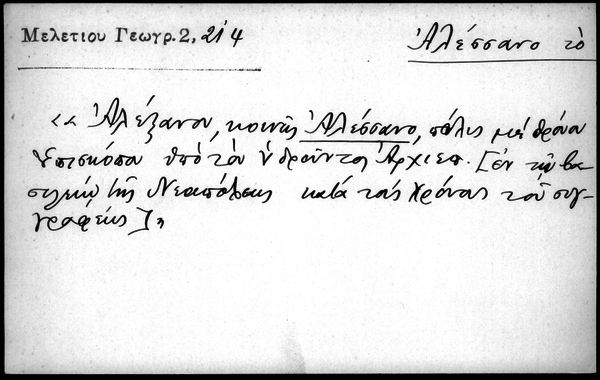 Μελετίου Γεωγρ. 2, 214
Ἀλέσσανο τὸ
«Ἀλέξανον, κοινῶς Ἀλέσσανο, πόλις μὲ θρόνον
Ἐπισκόπου ὑπὸ τὸν Ὑδροῦντος Ἀρχιεπ. [ἐν τῷ βα-
σιλείῳ τῆς Νεαπόλεως κατὰ τοὺς χρόνους τοῦ συγ-
γραφέως]»